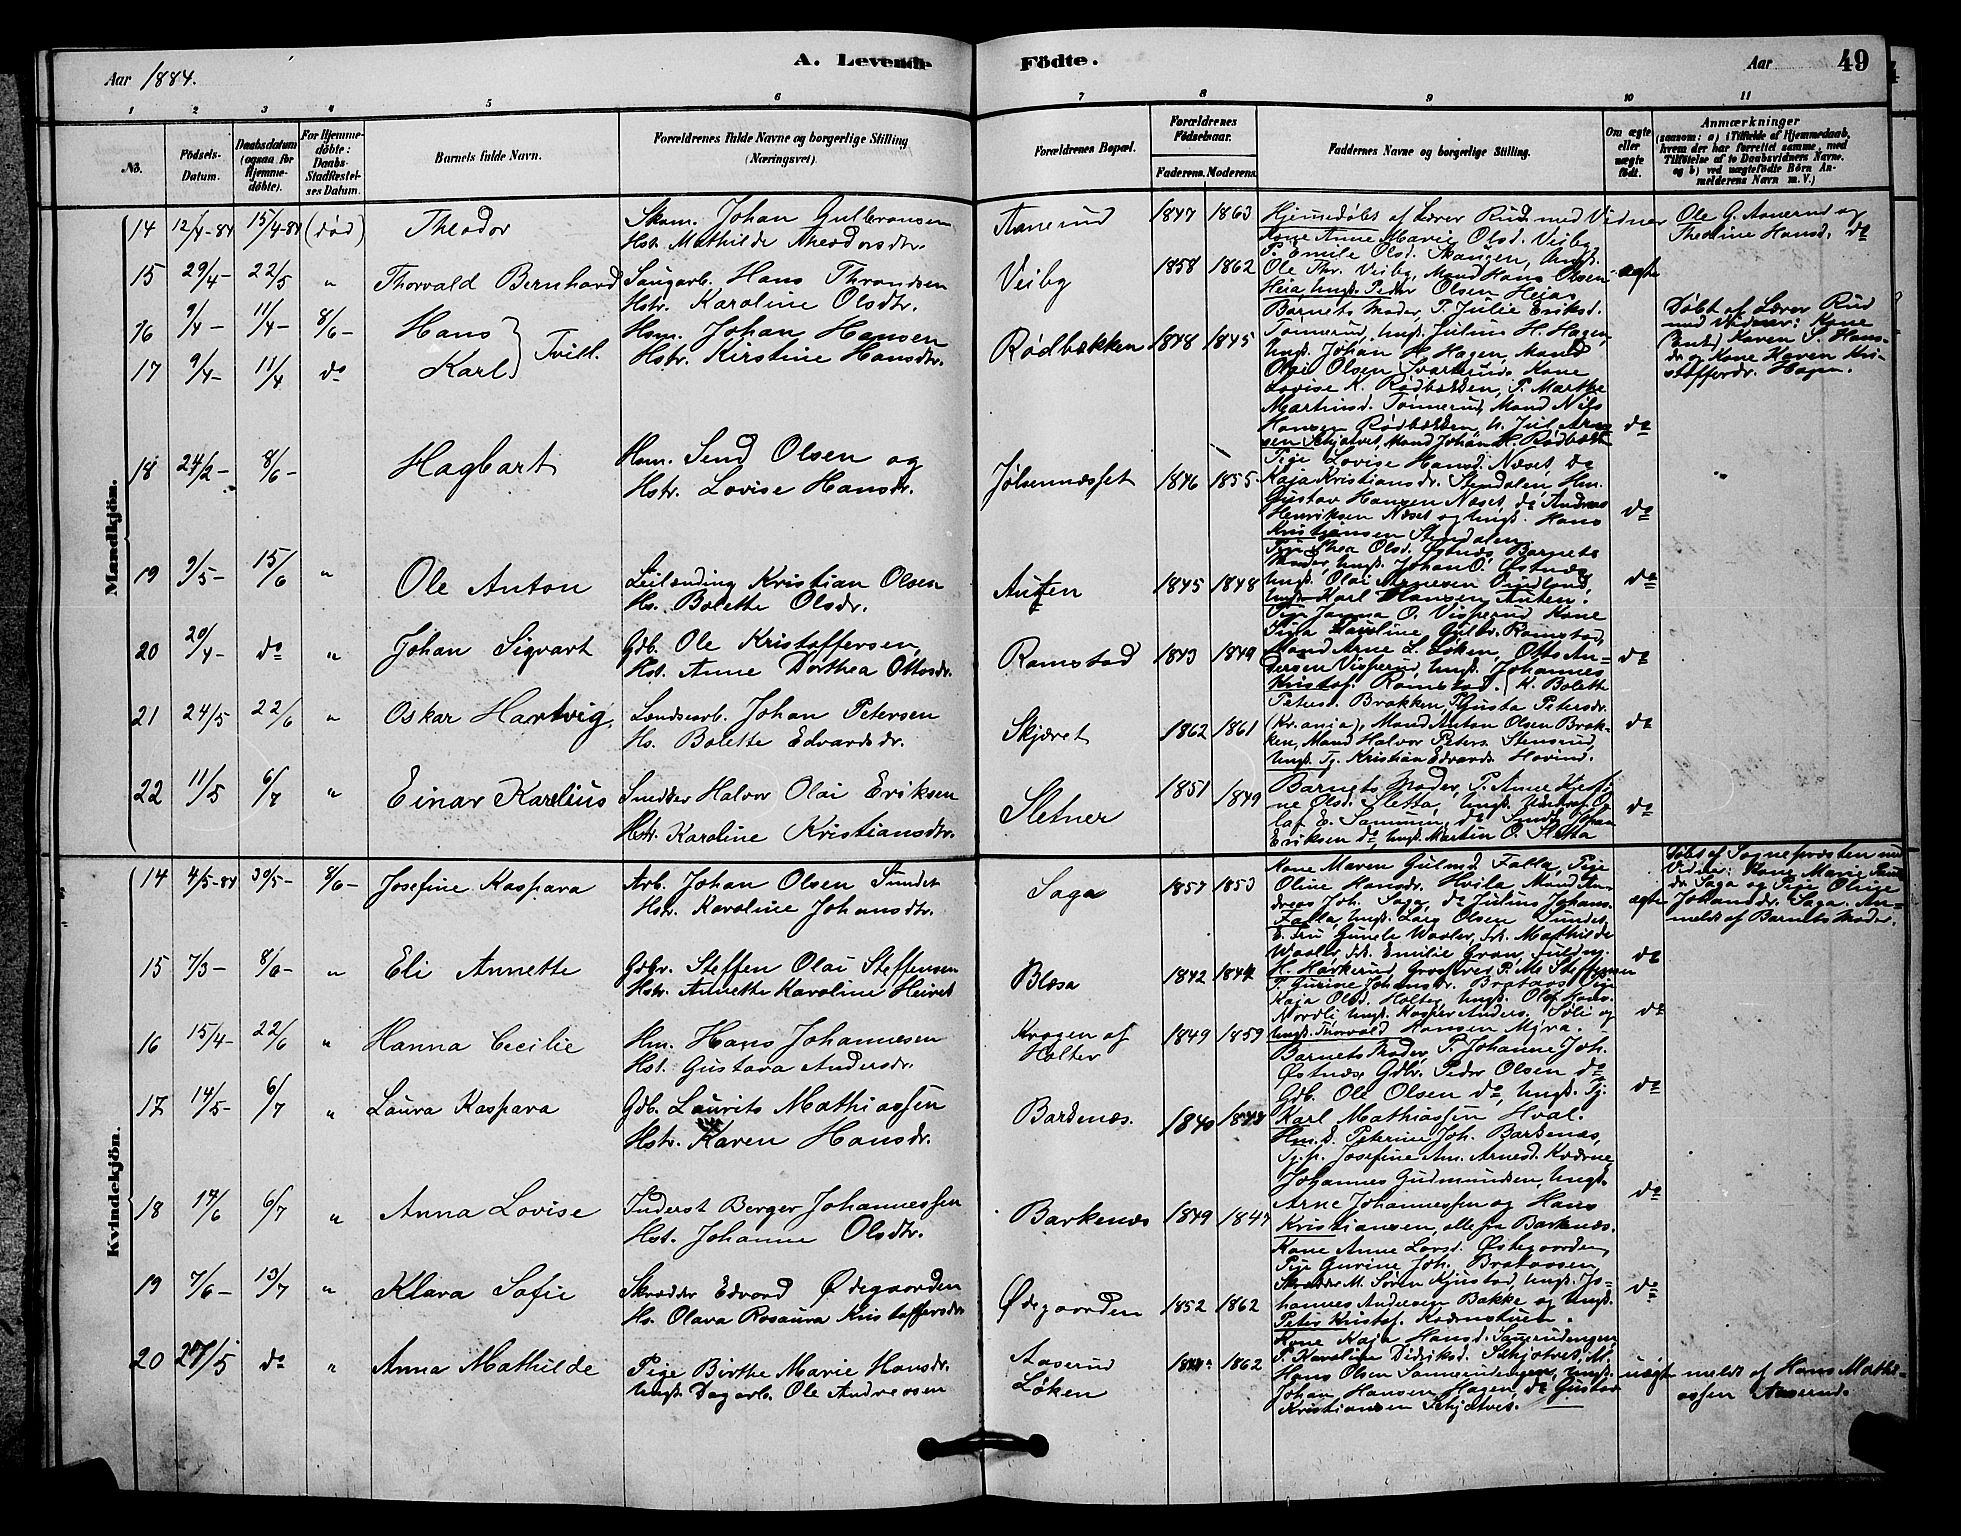 Aar 1884.
A. Levende
Födte.
Aar
49
1 2 3 4 5 6 7 8 9 10 11
No.
Födsels-Datum.
Daabsdatum (ogsaa for Hjemme-döbte).
For Hjemme-döbte: Daabs-Stadfæstel-ses Datum.
Barnets fulde Navn.
Forældrenes fulde Navne og borgerlige Stilling (Næringsvei).
Forældrenes Bopæl.
Forældrenes Födselsaar.
Faderens. Moderens.
Faddernes Navne og borgerlige Stilling.
Om ægte eller uægte födt.
Anmærkninger
(saasom: a) i Tilfælde af Hjemmedaab, hvem der har forrettet samme, med Tilföielse af to Daabsvidners Navne. og b) ved uægtefödte Börn An-melderens Navn m. V.)
Mandkjön.
14 12/4-84 15/4-84 (død) Theodor
Johan Gulbransen
Hst. Mathilde Theodorsdtr.
Aanerud 1847 1863
Hjemmedøbt af Lærer Rud med Vidner
Ole G. Aanerud og
Theoline Hansd. do
15 29/4- 22/5 " Thorvald Bernhard
Saugarb. Hans Thrandsen
Hstr. Karoline Olsdtr.
Veiby 1858 1862
Kone Anne Marie Olsd. Veiby,
P. Emile Olsd. Skaugen, Ungk.
Ole Thr. Veiby, Mand Hans Olsen
Heia, Ungk. Peder Olsen Heia.
ægte
16 9/4- 11/4- 8/6- Hans
17 9/4- 11/4 do Karl
Tvill.
Hsm. Johan Hansen
Hstr. Kirstine Hansdtr.
Rødbækken 1848 1845
Barnets Moder, P. Julie Eriksd.
Tønnerud, Ungk. Julius H. Hagen,
Ungk. Johan H. Hagen, Mand
Olai Olsen Svarterud, Kone
Lovise K. Rødbækken, P. Marthe
Martinsd. Tønnerud, Mand Nils
Hansen Rødbækken, U. Jul. Arne-
sen Skjatvet, Mand Johan H. Rødbækk.
do
Døbt af Lærer Rud
med Vidner: Kone
Karen S. Hans-
dr og Kone Karen Kri-
stoffersdr. Hagen.
18 24/2- 8/6- Hagbart
Hsm. Send Olsen og
Hstr. Lovise Hansdr.
Jølsennæsset 1846 1855
Pige Lovise Hansd. Næset, do
Kaja Kristiansdr. Stendalen Hm.
Gustav Hansen Næset, do Andreas
Henriksen Næset og Ungk. Hans
Kristiansen Stendalen.
do
19 9/5- 15/6 " Ole Anton
Leilænding Kristian Olsen
Hs. Bolette Olsdr.
Auten 1845 1848
Pige Thea Olsd. Østnæs, Barnets
Moder, Ungk. Johan O. Østnæs,
Ungk. Olai Arnesen Vindlund,
Ungk. Karl Hansen Auten.
do
20 20/4- do " Johan Sigvart
Gdb. Ole Kristoffersen,
Hst. Anne Dorthea Ottosdr.
Ramstad 1843 1849
Pige Janna O. Visperud, Kone
Karoline Gulbr. Ramstad,
Mand Arne L. Løken, Otto An-
dersen Visperud, Ungk. Johannes
Kristof. Ramstad.
do
21 24/5 22/6 " Oskar Hartvig.
Landsarb. Johan Petersen
Hs. Bolette Edvardsdr.
Skjæret 1862 1861
K. Bolette
Petersd. Brakken, P. Gusta Petersdr.
(Kr.ania), Mand Anton Olsen Brak-
ken, Mand Halvor Peters. Stensrud,
Ungk. Tj. Kristian Edvards. Hovind.
do
22 11/5 6/7 " Einar Karelius
Snedker Halvor Olai Eriksen
Hstr. Karoline Kristiansdtr.
Sletner 1851 1849
Barnets Moder, P. Anne
ne Olsd. Sletta, Ungk.
laf E. do Smed Johan
Eriksen do, Ungk. Martin O. Sletta
do
Kvindekjön.
14 4/5-84 30/5- 8/6- Josefine Kaspara
Arb. Johan Olsen Sundet
Hstr. Karoline Johansdtr.
Saga 1857 1853
Kone Maren Gulmd. Falla, Pige
Oline Hansdr. Hvila, Mand An-
dreas Joh. Saga, do Julius Johans.
Falla, Ungk. Lars Olsen Sundet.
ægte
Døbt af Sognepræsten med
Vidner: Kone Marie
Saga og Pige Oline
Johansdr. Saga. An-
meldt af Barnets Moder.
15 7/3- 8/6- " Eli Annette
Gdbr. Steffen Olai Steffensen
Hstr. Annette Karoline Heiret
Blæsa 1842 1844
E. Fru Gunele Waaler, Frk. Mathilde
Waaler, Frk. Emilie Gran,
H. Harkerud, P. M. Steffensen
do
16 15/4- 22/6 " Hanna Cecilie
Hm. Hans Johannesen
Hst. Gustava Andersdr.
Kragen af
Holter
1849 1859
P. Gurine Johansdr. Brataas, Pige
Kaja Olsd. Holter, Ungk. Olaf Hans.
Nordli, Ungk. Kasper Anders. Søli og
Ungk. Thorvald Hansen Myra.
do
17 14/5- 6/7 " Laura Kaspara
Gdb. Laurits Mathiassen
Hstr. Karen Hansdr.
Barkenæs. 1840
Barnets Moder, P. Johanne Joh.
Østnæs, Gdbr. Peder Olsen do
Gdb. Ole Olsen do, Ungk. Tj.
Karl Mathiassen Hval.
do
18 14/6 6/7 " Anna Lovise
Inderst Berger Johannessen
Hst. Johanne Olsdtr.
Barkenæs 1849 1847
Peterine Joh. Barkenæs,
Tj.p. Josefine Am. Arnesd. Kværne,
Johannes Gudmundsen, Ungk.
Arne Johannessen og Hans
Kristiansen, alle fra Barkenæs.
do
19 7/6- 13/7 " Klara Sofie
Skrædder Edvard Ødegaarden
Hs. Olava Rosaura Kristoffersdr
Ødegaarden 1852 1862
Kone Anne Larsd. Østegaarden,
Pige Gurine Joh. Brataasen,
Skrædder M. Søren Kjustad, Ungk. Jo-
hannes Andersen Bakke og Ungk.
Peter Kristof. Kværnstuen.
do
20 27/5 do " Anna Mathilde
Pige Birthe Marie Hansdr.
Ungk. Dagarb. Ole Andresen
Aaserud
Løken
1862
Kone Kaja Hansd. Sannerudengen,
P. Karoline Didriksd. Skjatvet, M.
Hans Olsen Sannerudengen, Ungk.
Johan Hansen Hagen, do Gustav
Kristiansen Skjatvet.
uægte
meldt af Hans Mathi-
assen Aaserud.